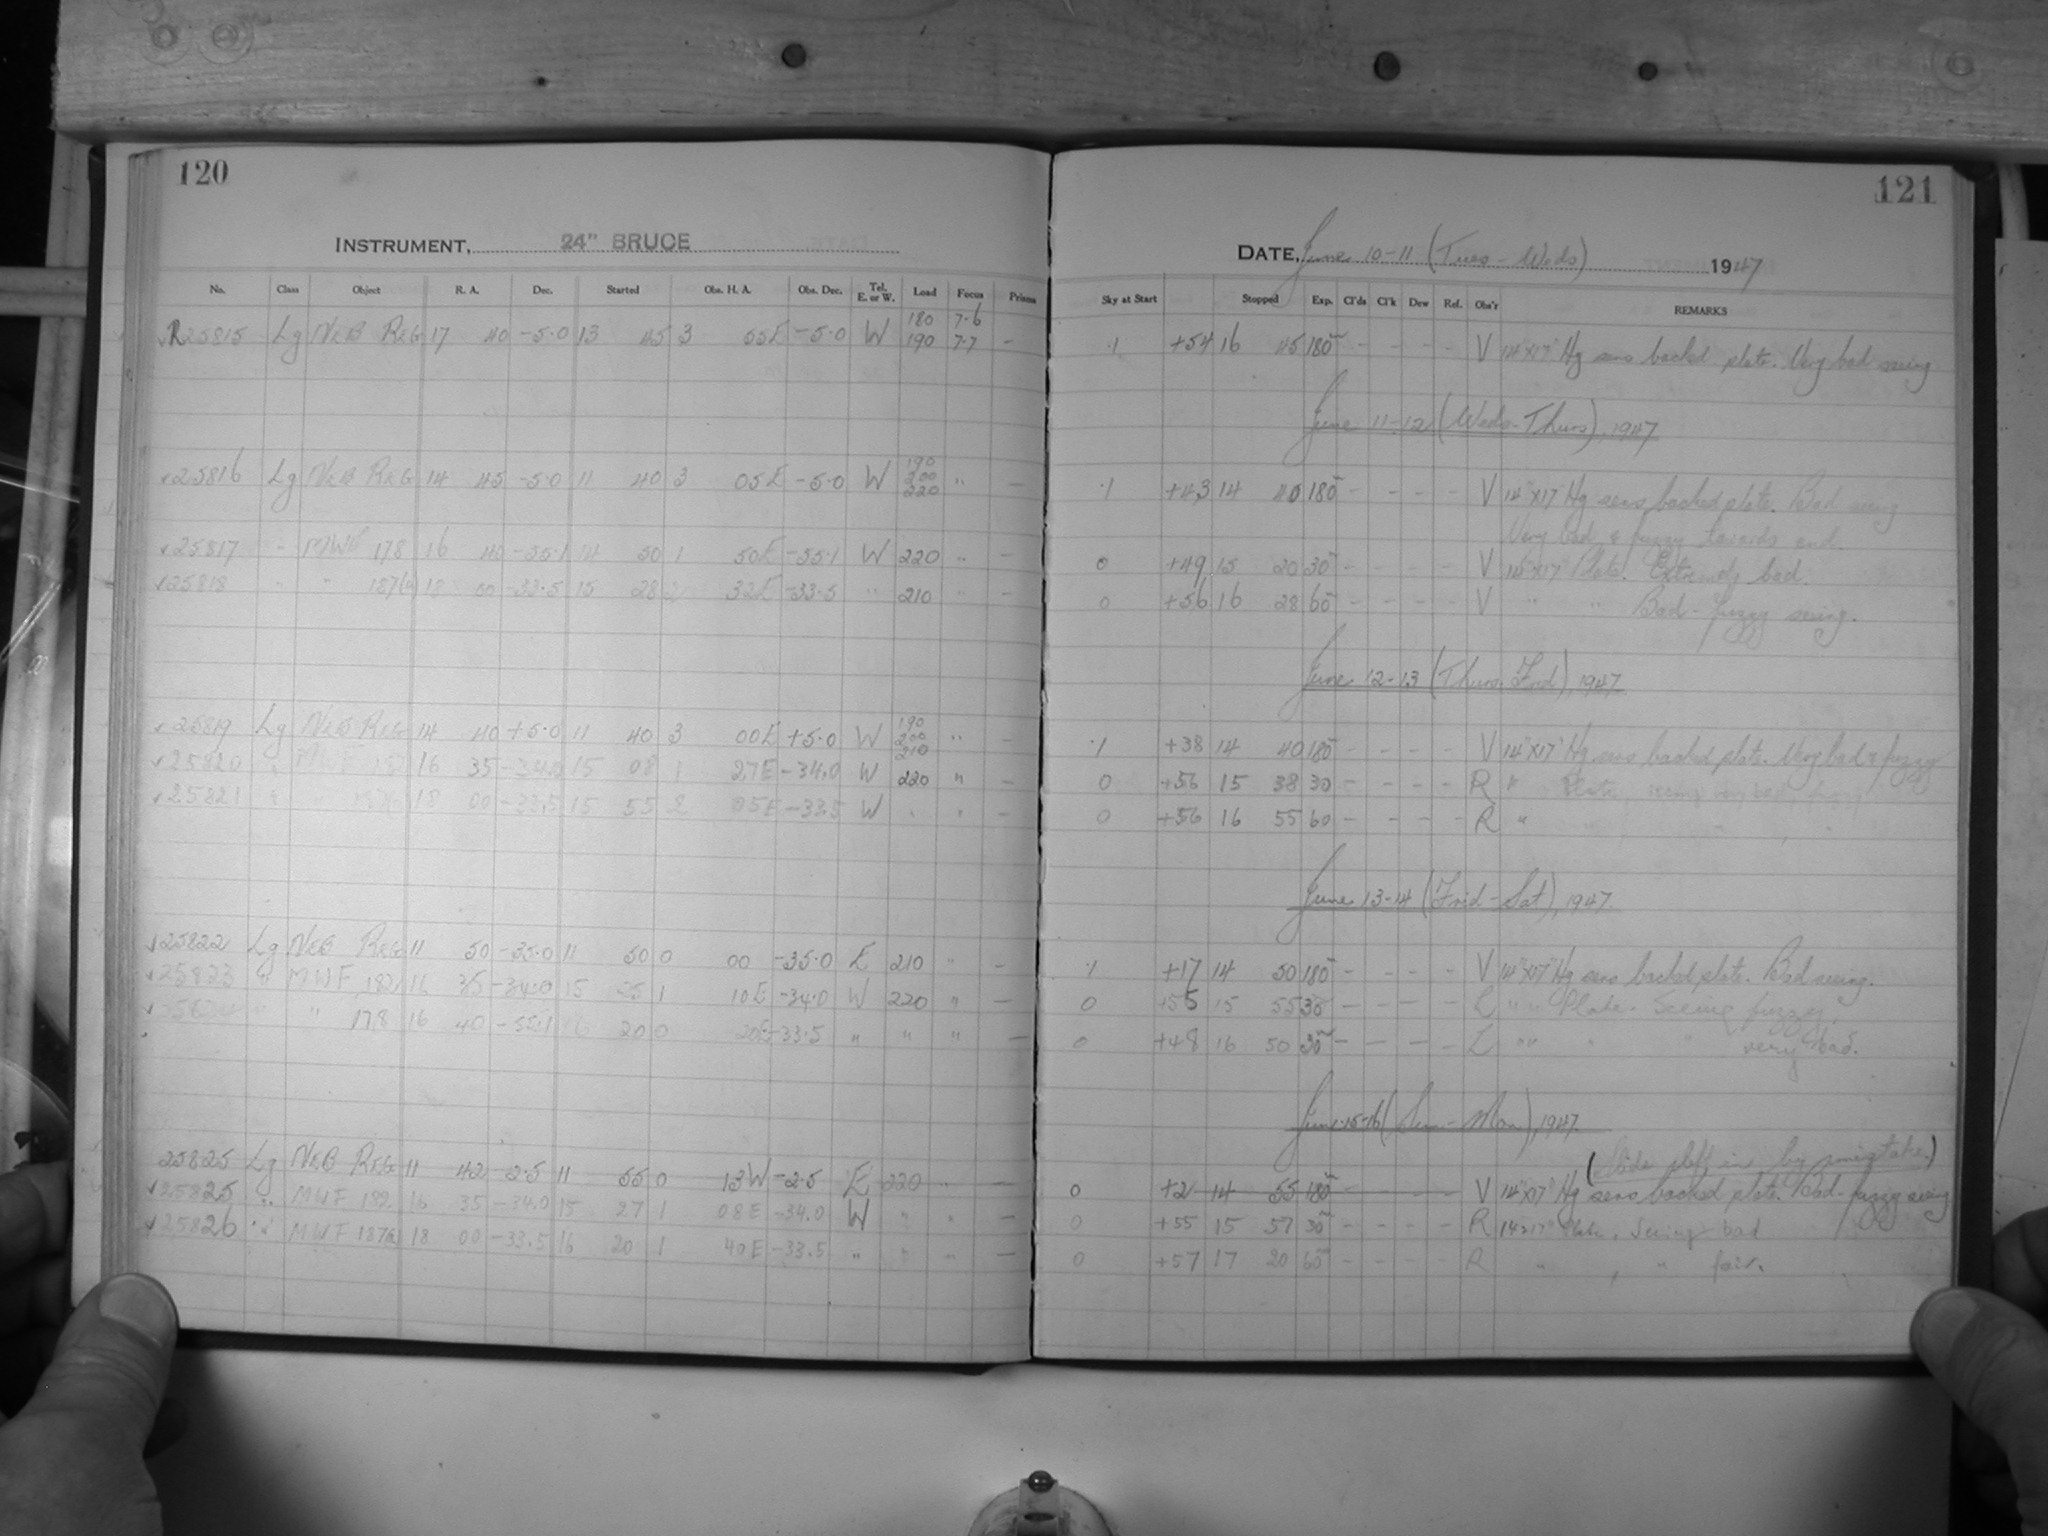 120
INSTRUMENT, 24" BRUCE
No. Class Object R. A. Dec. Started Obs. H. A. Obs. Dec. Tel. E. or W. Load Focus Prisms
R25815 Lg NEB REG 17 40 -5.0 13 45 3 55E -5.0 W 180 190 7.6 7.7 -
25816 Lg NEB REG 14 45 -5.0 11 40 3 05E -5.0 W 190 200 220 " -
25817 - MWF 178 16 40 -55.1 14 50 1 50E -55.1 W 220 " -
25818 " " 187(a) 18 00 -33.5 15 28 2 32E -33.5 " 210 " -
25819 Lg NEB REG 14 40 +5.0 11 40 3 00E +5.0 W 190 200 210 " -
25820 " MWF 16 35 -34.0 15 08 1 27E -34.0 W 220 " -
25821 " " 18 00 -33.5 15 55 2 05E -33.5 W " " -
25822 Lg NEB REG 11 50 -35.0 11 50 0 00 -35.0 E 210 " -
25823 " MWF 182 16 35 -34.0 15 25 1 10E -34.0 W 220 " -
" " 178 16 40 -55.1 16 20 0 20E -33.5 " " " -
25825 Lg NEB REG 11 42 -2.5 11 55 0 13W -2.5 E 220 " -
25825 " MWF 182 16 35 -34.0 15 27 1 08E -34.0 W " " -
25826 " MWF 187(a) 18 00 -33.5 16 20 1 40E -33.5 " " " -
121
DATE, June 10-11 (Tues-Weds) 1947
Sky at Start Stopped Exp. Cl'ds Cl'k Dew Ref. Obs'r REMARKS
.1 +54 16 45 180 - - - - V 14"x17" Hg sens backed plate. Very bad seeing
June 11-12 (Weds-Thurs), 1947
.1 +43 14 40 180 - - - - V 14"x17" Hg sens backed plate. Bad seeing
Very bad & fuzzy towards end.
0 +49 15 20 30 - - - - V 14"x17" Plate. Extremely bad.
0 +56 16 28 60 - - - - V " " Bad-fuzzy seeing.
June 12-13 (Thurs-Frid), 1947
.1 +38 14 40 180 - - - - V 14"x17" Hg sens backed plate. Very bad & fuzzy
0 +56 15 38 30 - - - - R " Plate, seeing very bad, fuzzy
0 +56 16 55 60 - - - - R "
June 13-14 (Frid-Sat), 1947.
.1 +17 14 50 180 - - - - V 14"x17" Hg sens backed plate. Bad seeing.
0 +55 15 55 30 - - - - L " " Plate. Seeing fuzzy.
0 +48 16 50 30 - - - - L " " " " very bad.
June 15-16 (Sun-Mon), 1947
(Slide left in by mistake.)
0 +2 14 55 180 - - - - V 14"x17" Hg sens backed plate. Bad-fuzzy seeing
0 +55 15 57 30 - - - - R 14x17" Plate, Seeing bad
0 +57 17 20 60 - - - - R " , " fair.